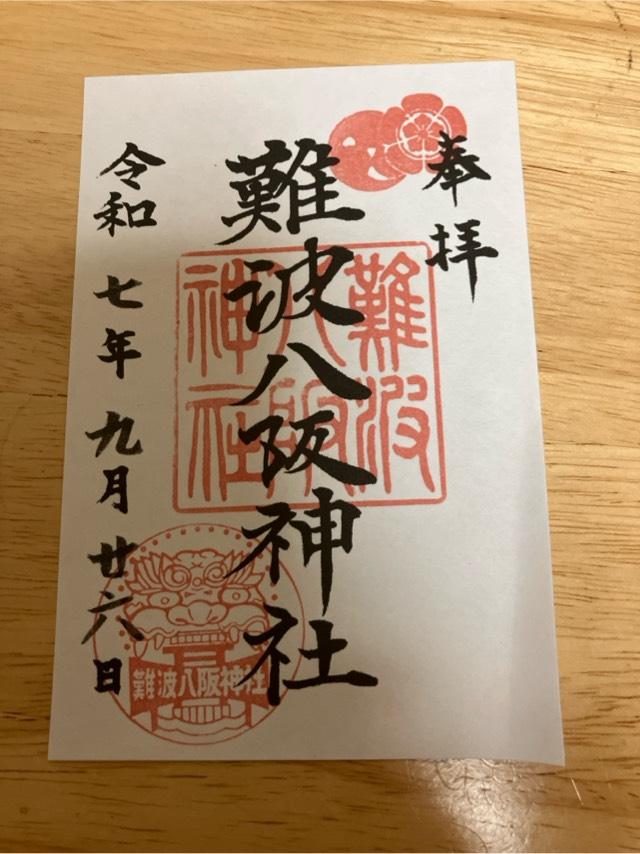 奉拝
難波八阪神社
難波
八阪
神社
令和七年九月廿六日
難波八阪神社